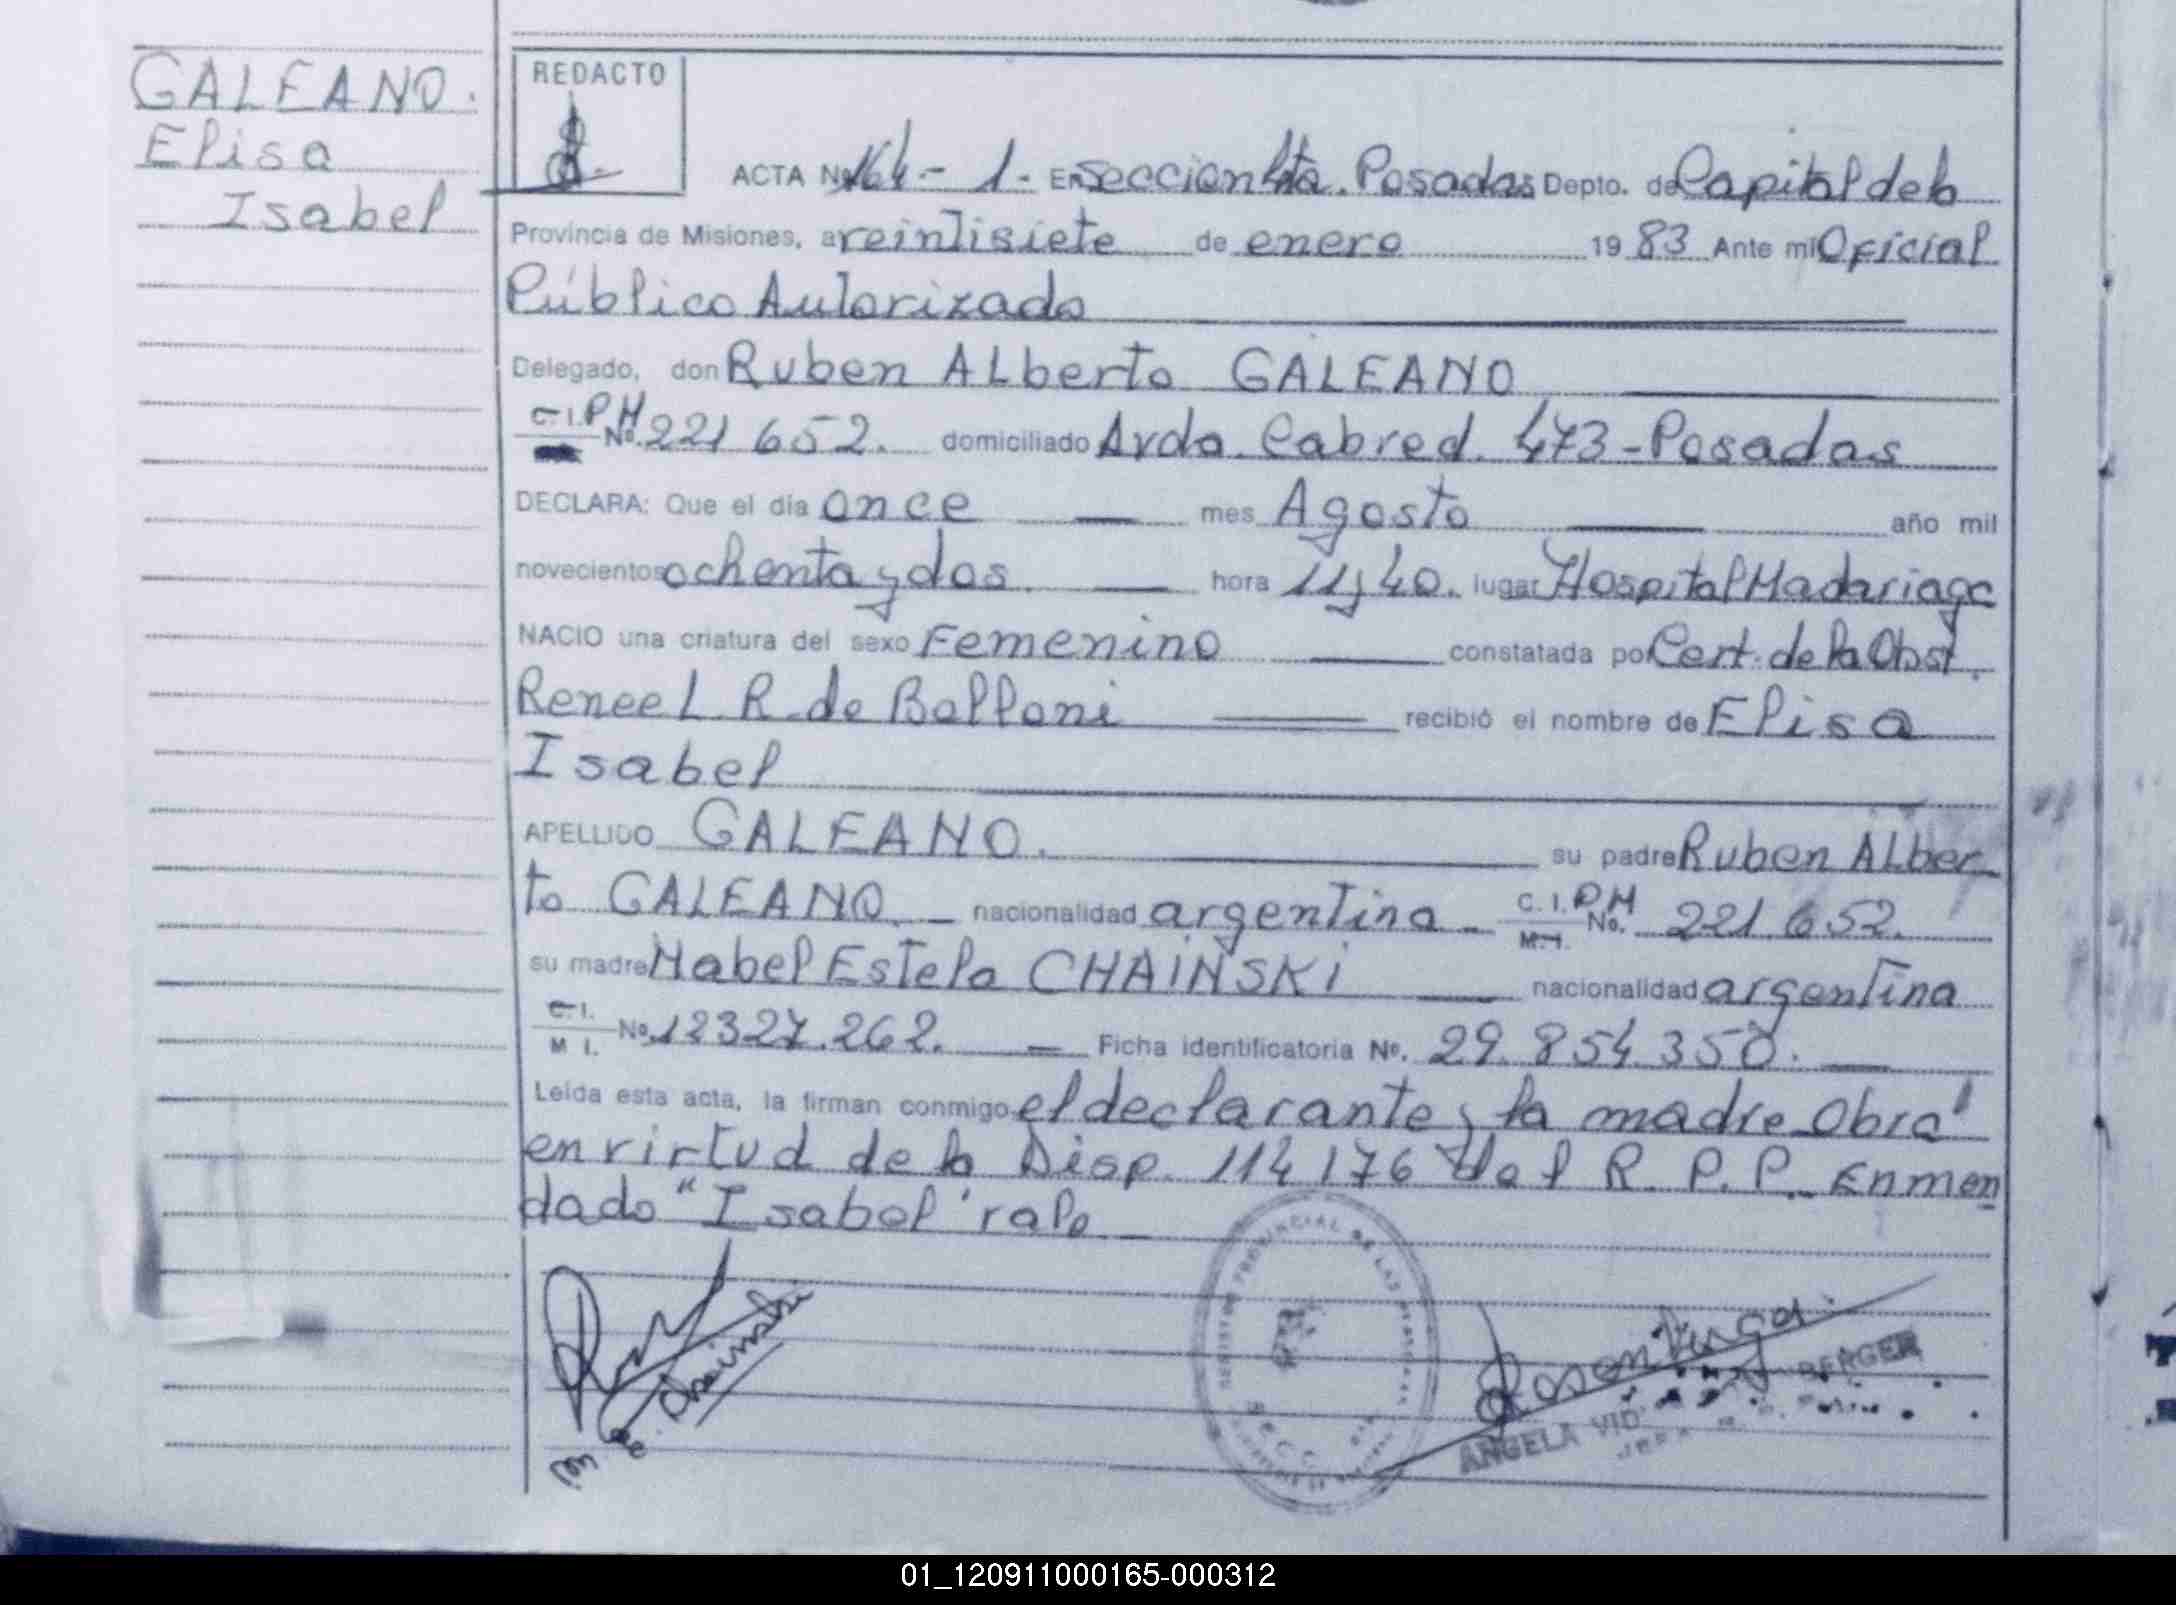 GALEANO.
Elisa
Isabel
REDACTO
ACTA Nº 164 - 1. En Seccion 4ta. Posadas Depto. de Capital de la
Provincia de Misiones, a veintisiete de enero 1983 Ante mi Oficial
Público Autorizado
Delegado, don Ruben ALberto GALEANO
C.I. P M Nº. 221 652. domiciliado Avda. Cabred. 473-Posadas
DECLARA: Que el día once mes Agosto año mil
novecientos ochenta y dos hora 11 y 40. lugar Hospital Madariaga
NACIO una criatura del sexo Femenino constatada por Cert. de la Obst.
Renee L. R. de Balloni recibió el nombre de Elisa
Isabel
APELLIDO GALEANO. su padre Ruben ALber
to GALEANO. nacionalidad argentina C.I. P M M.I. No. 221 652.
su madre Mabel Estela CHAINSKI nacionalidad argentina
C.I. M I. Nº. 12327.262. Ficha identificatoria Nº. 29.854.350.
Leída esta acta, la firman conmigo el declarante y la madre Obra
en virtud de la Disp. 114 176 del R. P. P. Enmen
dado "Isabel" vale
REGISTRO PROVINCIAL DE LAS PERSONAS
M E. Chainski
BERGER
ANGELA
01_120911000165-000312